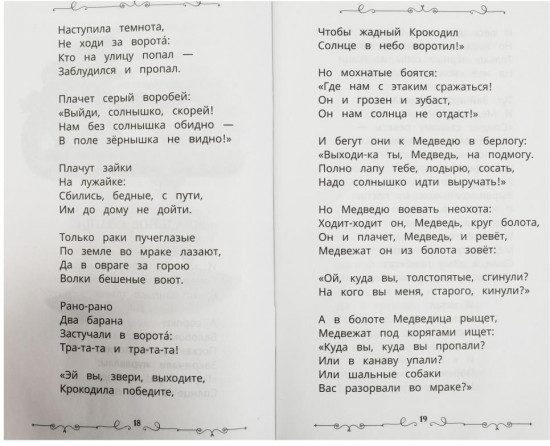 Наступила темнота,
Не ходи за ворота́:
Кто на улицу попал —
Заблудился и пропал.
Плачет серый воробей:
«Выйди, солнышко, скорей!
Нам без солнышка обидно —
В поле зёрнышка не видно!»
Плачут зайки
На лужайке:
Сбились, бедные, с пути,
Им до дому не дойти.
Только раки пучеглазые
По земле во мраке лазают,
Да в овраге за горою
Волки бешеные воют.
Рано-рано
Два барана
Застучали в ворота́:
Тра-та-та и тра-та-та!
«Эй вы, звери, выходите,
Крокодила победите,
18
Чтобы жадный Крокодил
Солнце в небо воротил!»
Но мохнатые боятся:
«Где нам с этаким сражаться!
Он и грозен и зубаст,
Он нам солнца не отдаст!»
И бегут они к Медведю в берлогу:
«Выходи-ка ты, Медведь, на подмогу.
Полно лапу тебе, лодырю, сосать,
Надо солнышко идти выручать!»
Но Медведю воевать неохота:
Ходит-ходит он, Медведь, круг болота,
Он и плачет, Медведь, и ревёт,
Медвежат он из болота зовёт:
«Ой, куда вы, толстопятые, сгинули?
На кого вы меня, старого, кинули?»
А в болоте Медведица рыщет,
Медвежат под корягами ищет:
«Куда вы, куда вы пропали?
Или в канаву упали?
Или шальные собаки
Вас разорвали во мраке?»
19